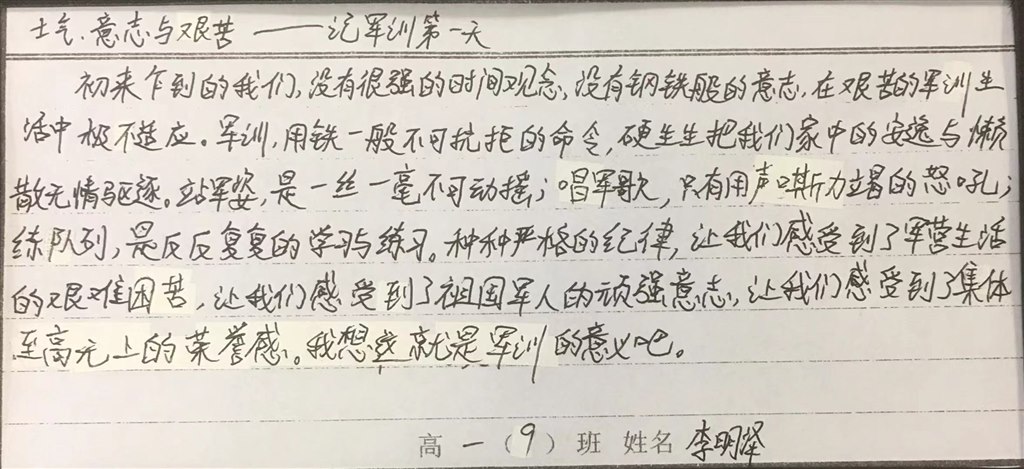 士气、意志与艰苦 ——记军训第一天
初来乍到的我们,没有很强的时间观念,没有钢铁般的意志,在艰苦的军训生
活中极不适应。军训,用铁一般不可抗拒的命令,硬生生把我们家中的安逸与懒
散无情驱逐。站军姿,是一丝一毫不可动摇;唱军歌,只有用声嘶力竭的怒吼;
练队列,是反反复复的学习与练习。种种严格的纪律,让我们感受到了军营生活
的艰难困苦,让我们感受到了祖国军人的顽强意志,让我们感受到了集体
至高无上的荣誉感。我想这就是军训的意义吧。
高一(9)班 姓名 李明泽